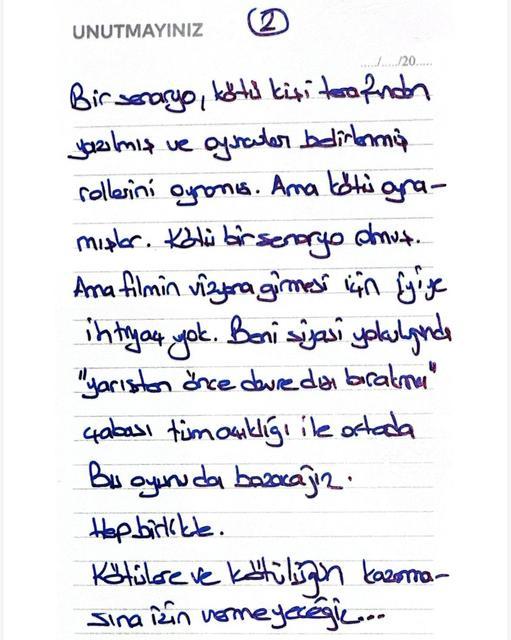 UNUTMAYINIZ
2
..../..../20.....
Bir senaryo, kötü kişi tarafından
yazılmış ve oyuncular belirlenmiş
rollerini oynamış. Ama kötü oyna-
mışlar. Kötü bir senaryo olmuş.
Ama filmin vizyona girmesi için iyiye
ihtiyaç yok. Beni siyasi yolculuğunda
"yarıştan önce devre dışı bırakma"
çabası tüm açıklığı ile ortada
Bu oyunu da bozacağız.
Hep birlikte.
Kötülere ve kötülüğün kazanma-
sına izin vermeyeceğiz...